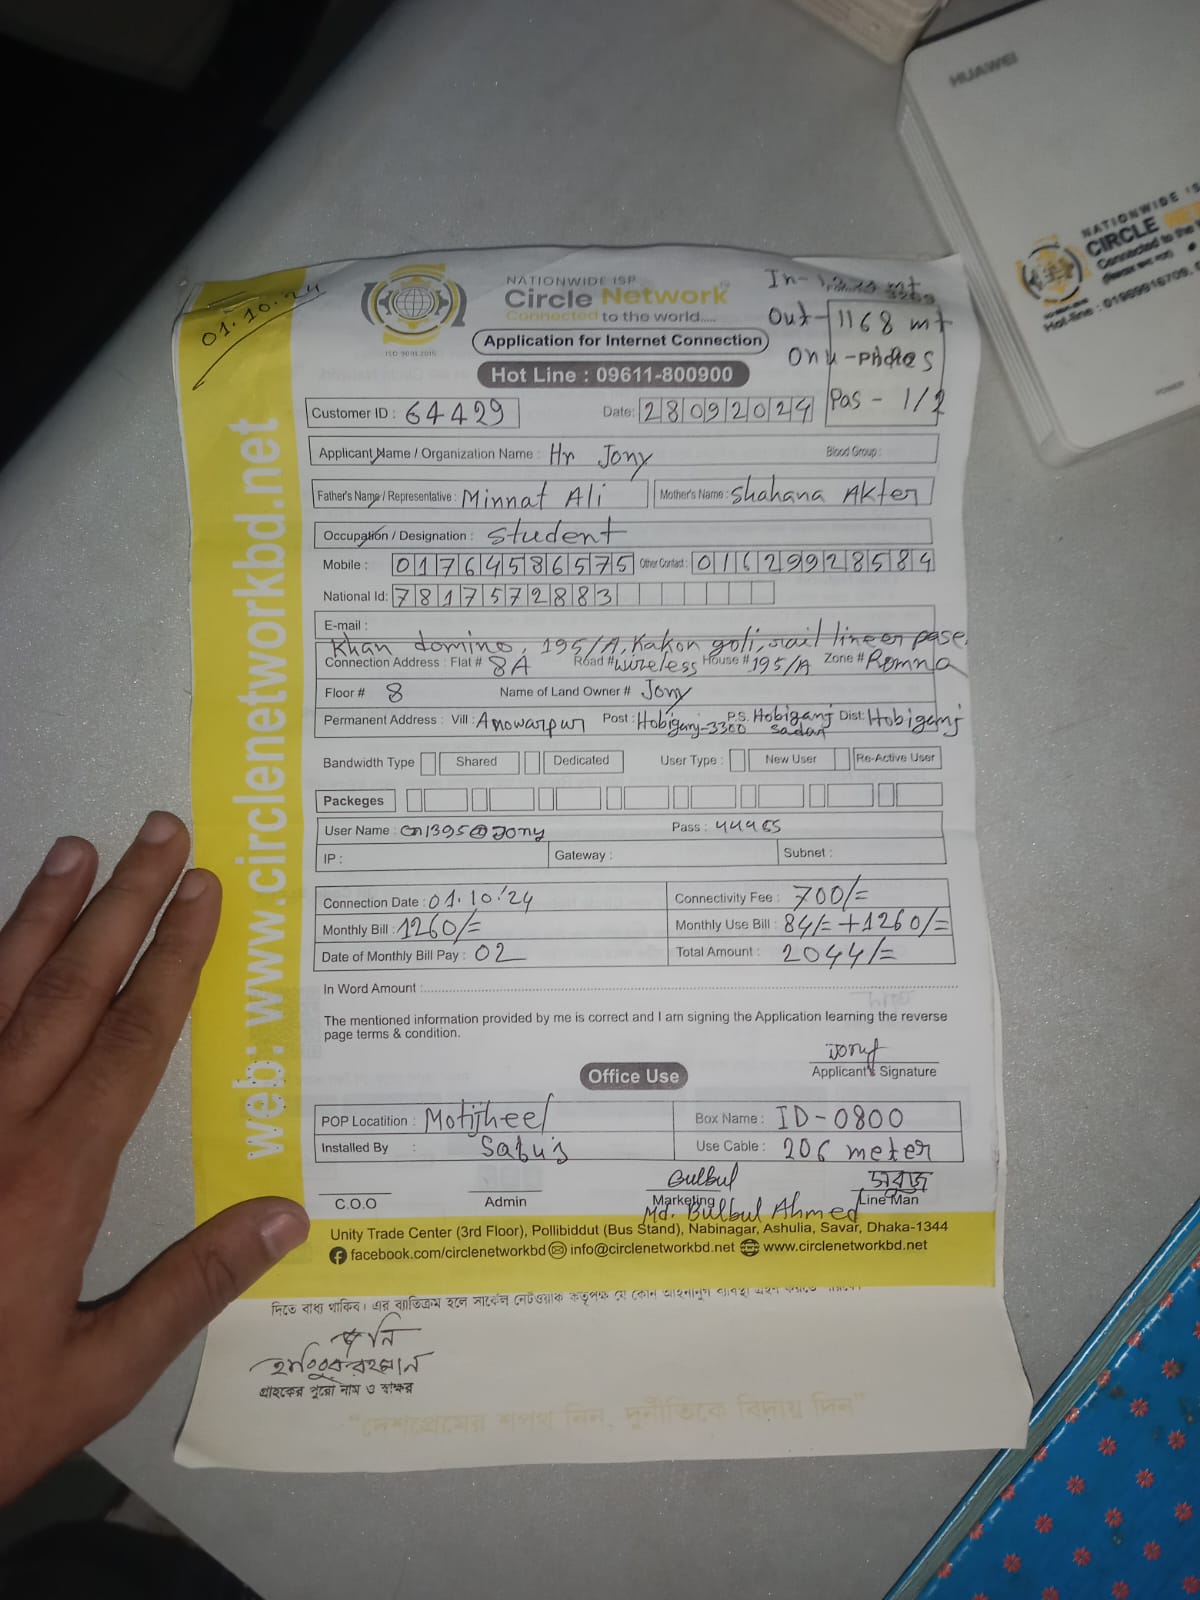 HUAWEI
NATIONWIDE IS
CIRCLE NE
Connected to the
Hot-line : 01969916709,
POWER
01.10.24
NATIONWIDE ISP
Circle Network
Connected to the world....
ISO 9001:2015
In-
Out-1168 mt
Onu-
Pas - 1/2
Application for Internet Connection
Hot Line : 09611-800900
Customer ID : 64429 Date: 28092024
Applicant Name / Organization Name : Hr Jony Blood Group :
Father's Name / Representative : Minnat Ali Mother's Name : Shahana Akter
Occupation / Designation : Student
Mobile : 01764586575 Other Contact : 01629928584
National Id: 7817572883
E-mail :
Khan domino, 195/A, Kakon goli, rail lineer pase.
Connection Address : Flat # 8A Road # wireless House # 195/A Zone # Romna
Floor # 8 Name of Land Owner # Jony
Permanent Address : Vill : Anowarpur Post : Hobiganj-3300 P.S. Hobiganj Sadar Dist: Hobiganj
Bandwidth Type Shared Dedicated User Type : New User Re-Active User
Packeges
User Name : cn1395@Jony Pass :
IP : Gateway : Subnet :
Connection Date : 01.10.'24 Connectivity Fee : 700/=
Monthly Bill : 1260/= Monthly Use Bill : 84/= +1260/=
Date of Monthly Bill Pay : 02 Total Amount : 2044/=
In Word Amount :
The mentioned information provided by me is correct and I am signing the Application learning the reverse
page terms & condition.
Jony
Applicant's Signature
Office Use
POP Locatition : Motijheel Box Name : ID-0800
Installed By : Use Cable : 206 meter
Bulbul সবুজ
C.O.O Admin Marketing Line Man
Md. Bulbul Ahmed
Unity Trade Center (3rd Floor), Pollibiddut (Bus Stand), Nabinagar, Ashulia, Savar, Dhaka-1344
facebook.com/circlenetworkbd info@circlenetworkbd.net www.circlenetworkbd.net
web: www.circlenetworkbd.net
দিতে বাধ্য থাকিব। এর ব্যতিক্রম হলে সার্কেল নেটওয়ার্ক কতৃপক্ষ যে কোন আইনানুগ ব্যবস্থা
জনি
গ্রাহকের পুরো নাম ও স্বাক্ষর
"দেশপ্রেমের শপথ নিন, দুর্নীতিকে বিদায় দিন"